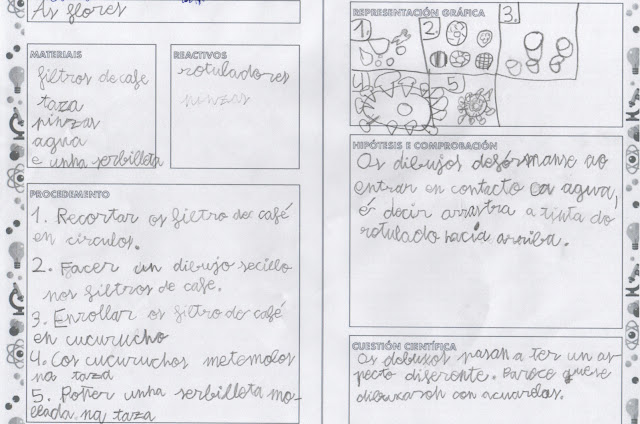 As flores
MATERIAIS
filtros de cafe
taza
pinzas
agua
e unha serbilleta
REACTIVOS
rotuladores
pinzas
PROCEDEMENTO
1. Recortar os filtro de café
en circulos.
2. Facer un dibujo secillo
nos filtros de cafe.
3. Enrollar os filtro de café
en cucurucho
4. Cos cucuruchos metemolos
na taza
5. Poñer unha serbilleta mo-
llada na taza
REPRESENTACIÓN GRÁFICA
1. 2. 3.
4 5
HIPÓTESIS E COMPROBACIÓN
Os dibujos desórmanse ao
entrar en contacto ca agua,
é decir arrastra a tinta do
rotulado hacia arriba.
CUESTIÓN CIENTÍFICA
Os debuxos pasan a ter un as-
pecto diferente. Paroce que se
dibuxaron con acuarelas.